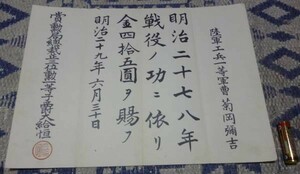 陸軍工兵一等軍曹菊岡彌吉
明治二十七八年
戦役ノ功ニ依リ
金四拾五圓ヲ賜フ
明治二十九年六月三十日
賞勲局總裁正三位勲一等子爵大給恒